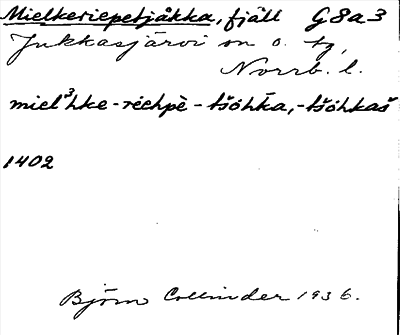 Mielkeriepetjåkka, fjäll G8a3
Jukkasjärvi sn o. tg,
Norrb. l.
miel³hke-riehpè-tšòhḱa,-tšòhkaš
1402
Björn Collinder 1936.